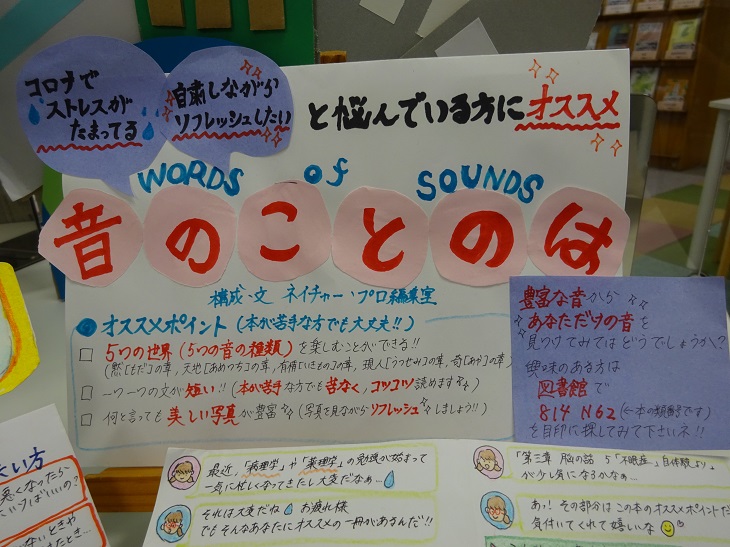 コロナで
ストレスが
たまってる
自粛しながら
リフレッシュしたい
と悩んでいる方にオススメ
WORDS of SOUNDS
音のことのは
構成・文 ネイチャー・プロ編集室
オススメポイント(本が苦手な方でも大丈夫!!)
□ 5つの世界(5つの音の種類)を楽しむことができる!!
(黙[もだ]の章、天地[あめつち]の章、有情[いきもの]の章、現人[うつせみ]の章、
□ 一つ一つの文が短い!!(本が苦手な方でも苦なく、コツコツ読めます)
□ 何と言っても美しい写真が豊富(写真を見ながらリフレッシュしましょう!!)
豊富な音から
あなただけの音を
見つけてみてはどうでしょうか?
興味のある方は
図書館で
814 N62(←本の類番号です)
を目印に探してみて下さいネ!!
最近、「病理学」や「薬理学」の勉強が始まって
一気に忙しくなってきたし大変だなぁ…
それは大変だね お疲れ様
でもそんなあなたにオススメの一冊があるんだ!!
「第三章 脳の話 5「不眠症」自体験より」
が少し気になるかなぁ…
あっ!その部分はこの本のオススメポイントだ
気付いてくれて嬉しいな